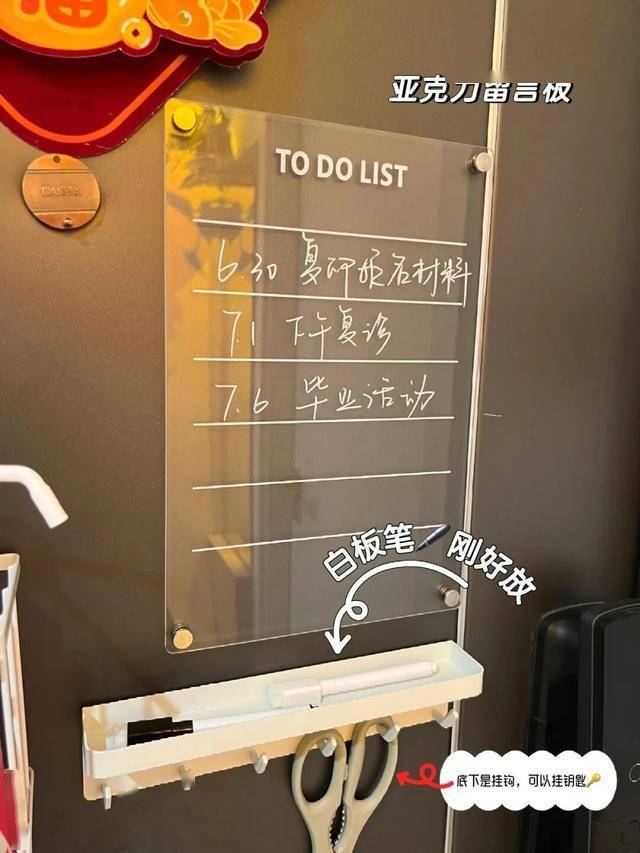 亚克力留言板
TO DO LIST
6.30 复研报名材料
7.1 下午复诊
7.6 毕业活动
白板笔 刚好放
底下是挂钩，可以挂钥匙